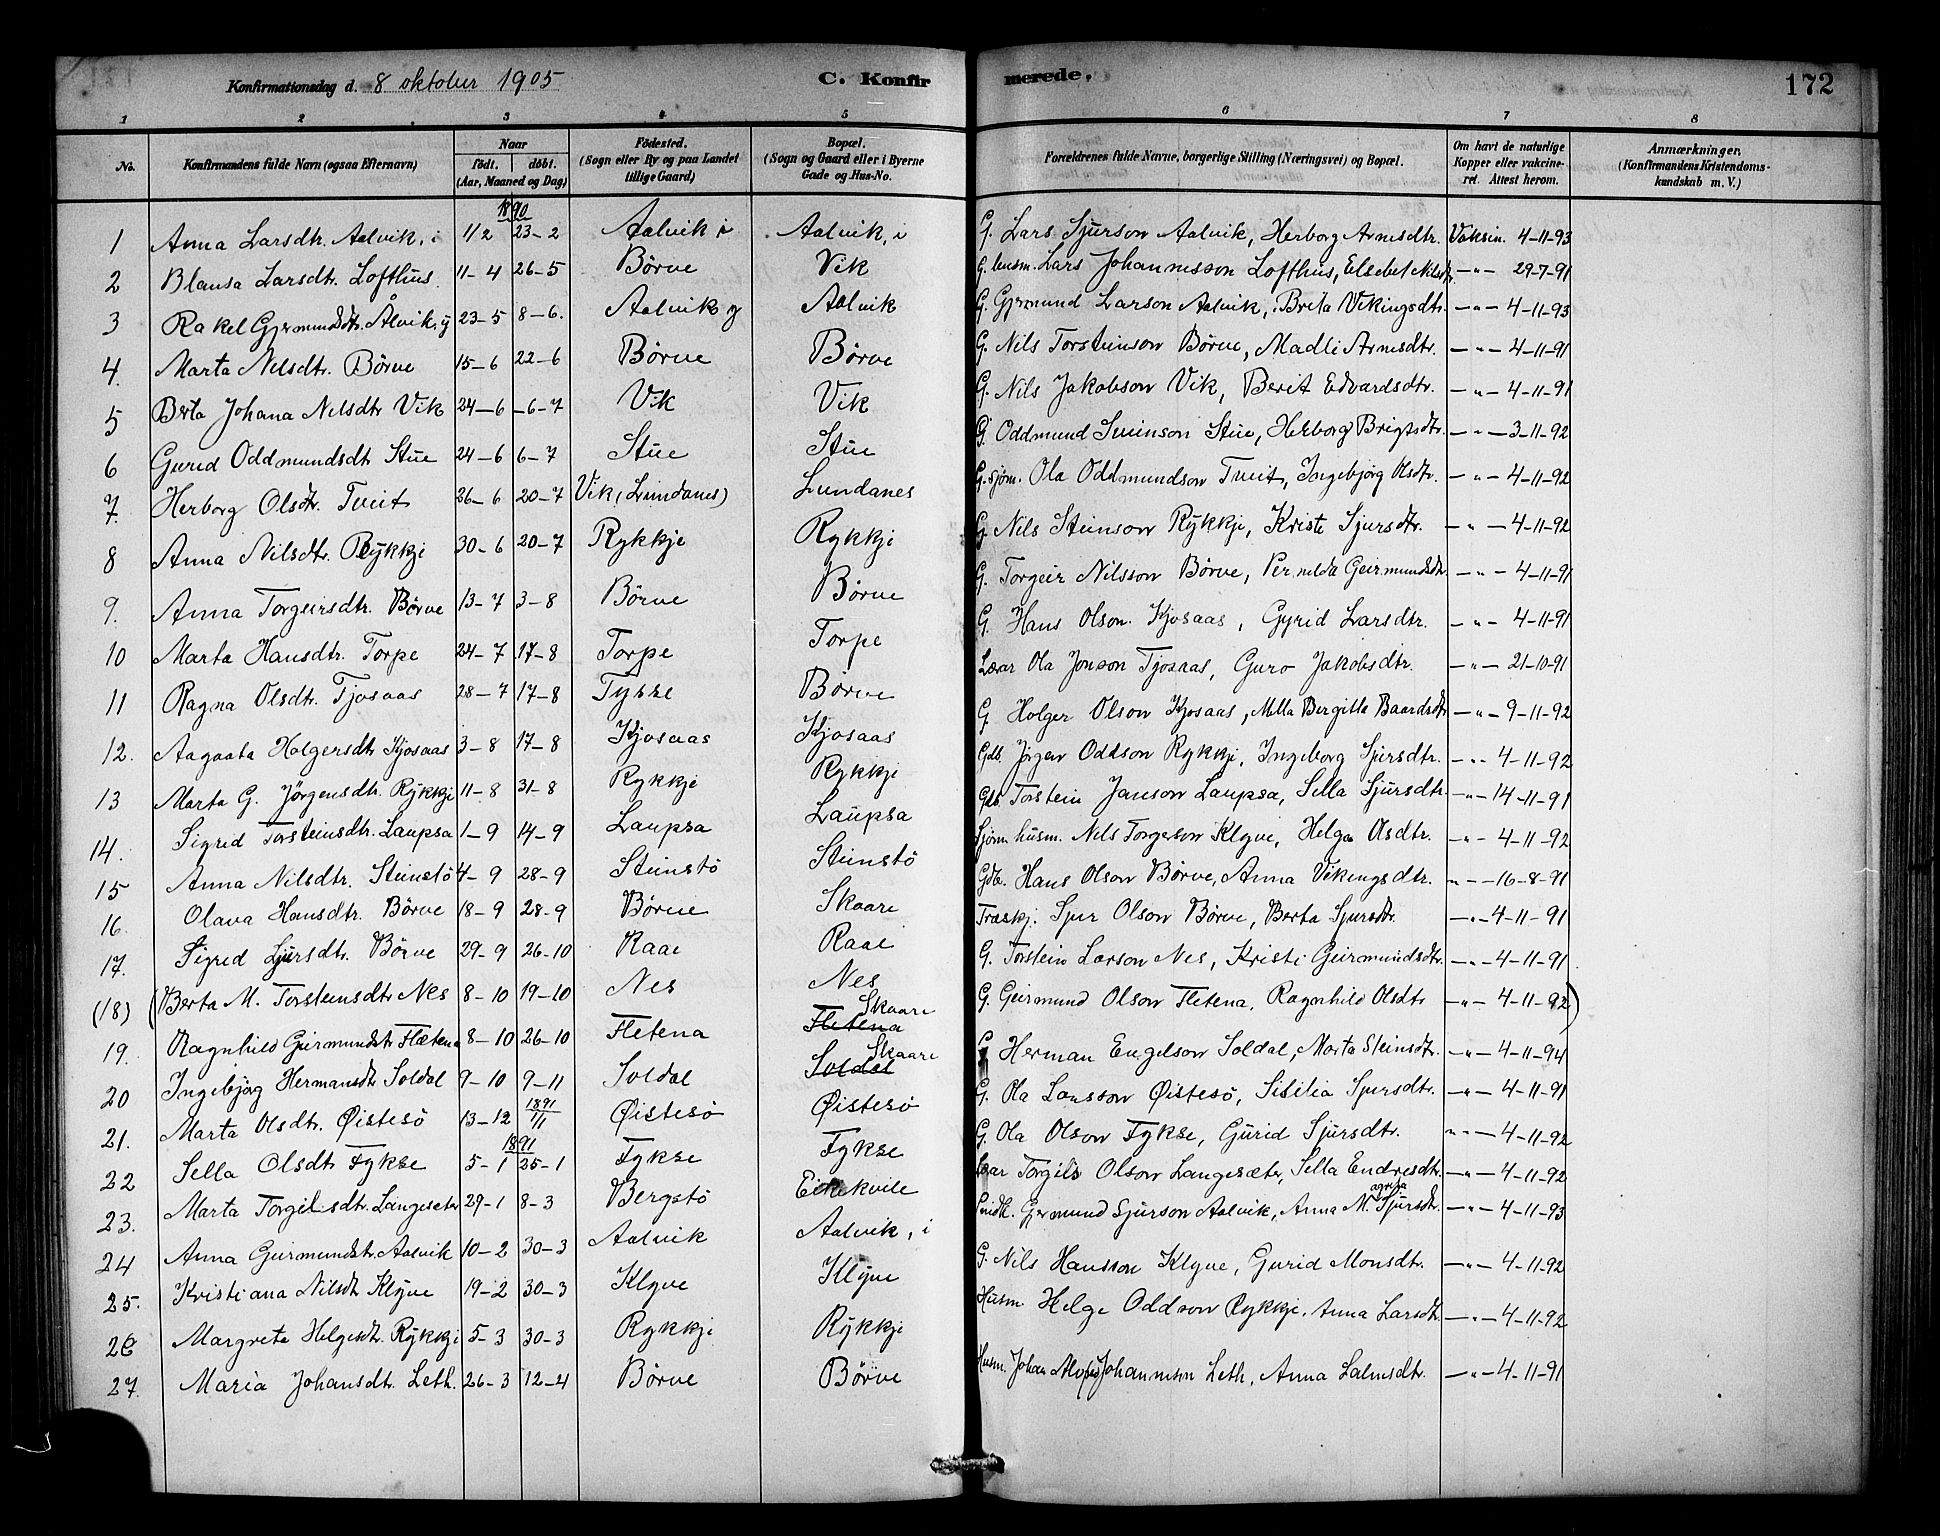 Konfirmationsdag d. 8 oktober 1905 C. Konfir merede. 172
1 2 3 4 5 6 7 8
No. Konfirmandens fulde Navn (ogsaa Efternavn) Naar født. døbt. (Aar, Maaned og Dag) Fødested. (Sogn eller By og paa Landet tillige Gaard) Bopæl. (Sogn og Gaard eller i Byerne Gade og Hus-No. Forældrenes fulde Navne, borgerlige Stilling (Næringsvei) og Bopæl. Om havt de naturlige Kopper eller vakcineret. Attest herom. Anmærkninger, (Konfirmandens Kristendomskundskab m. V.)
1890
1 Anna Larsdtr. Aalvik, i 1/2 23-2 Aalvik i Aalvik, i G. Lars Sjurson Aalvik, Herborg Arnesdtr. Vaksin. 4-11-93
2 Blansa Larsdtr. Lofthus 11-4 26-5 Børve Vik G. husm. Lars Johannesson Lofthus, Elsebet Nilsdtr. —"— 29-7-91
3 Rakel Gjermundsdtr. Ålvik, y 23-5 8-6. Aalvik y Aalvik G. Gjermund Larson Aalvik, Brita Vikingsdtr. —"— 4-11-93
4. Marta Nilsdtr. Börve 15-6 22-6 Børve Børve G. Nils Torsteinson Börve, Madli Arnesdtr. —"— 4-11-91
5 Berta Johana Nilsdtr Vik 24-6 -6-7 Vik Vik G. Nils Jakobson Vik, Berit Edvardsdtr. —"— 4-11-91
6 Gurid Oddmundsdtr Stue 24-6 6-7 Stue Stue G. Oddmund Sveinson Stue, Herborg Brigtsdtr. —"— 3-11-92
7. Herborg Olsdtr. Tveit 26-6 20-7 Vik (Lundanes) Lundanes G. sjøm. Ola Oddmundson Tveit, Ingebjørg Olsdtr. —"— 4-11-92
8 Anna Nilsdtr. Rykkje 30-6 20-7 Rykkje Rykkje G. Nils Steinson Rykkje, Kristi Sjursdtr. —"— 4-11-92
9. Anna Torgeirsdtr. Børve 13-7 3-8 Børve Børve G. Torgeir Nilsson Börve, Pernilda Geirmundsdtr —"— 4-11-91
10 Marta Hansdtr. Torpe 24-7 17-8 Torpe Torpe G. Hans Olson Kjosaas, Gyrid Larsdtr. —"— 4-11-91
11 Ragna Olsdtr. Tjosaas 28-7 17-8 Børve Lærar Ola Jonson Tjosaas, Guro Jakobsdtr. —"— 21-10-91
12. Aagaata Holgersdtr Kjosaas 3-8 17-8 Kjosaas Kjosaas G. Holger Olson Kjosaas, Bergitta Baardsdtr —"— 9-11-92
13 Marta G. Jörgensdtr. Rykkje 11-8 31-8 Rykkje Rykkje Gdb. Jörgen Oddson Rykkje, Ingeborg Sjursdtr. —"— 4-11-92
14. Sigrid Torsteinsdtr. Laupsa 1-9 14-9 Laupsa Laupsa Gdb. Torstein Janson Laupsa, Sella Sjursdtr —"— 14-11-91
15 Anna Nilsdtr. Steinstö 4-9 28-9 Steinstö Steinstö Sjöm husm. Nils Torgerson Klyve, Helga Olsdtr. —"— 4-11-92
16. Olava Hansdtr. Börve 18-9 28-9 Börve Skaare Gdb. Hans Olson Børve, Anna Vikingsdtr. —"— 16-8-91
17. Sigrid Sjursdtr. Børve 29-9 26-10 Raae Raae Træskj. Sjur Olson Børve, Berta Sjursdtr. —"— 4-11-91
(18) (Berta M. Torsteinsdtr Nes 8-10 19-10 Nes Nes G. Torstein Larson Nes, Kristi Geirmundsdtr. —"— 4-11-91
19. Ragnhild Geirmundsdtr Fletena 8-10 26-10 Fletena Fletena Skaare G. Geirmund Olson Fletena, Ragnhild Olsdtr —"— 4-11-92)
20 Ingebjörg Hermansdtr Soldal 9-10 9-11 Soldal Soldal Skaare G. Herman Engelson Soldal, Marta Steinsdtr. —"— 4-11-94
21. Marta Olsdtr. Øistesö 13-12 1891 1/1 Øistesö Øistesö G. Ola Larsson Øistesö, Sisilia Sjursdtr. —"— 4-11-91
1891
22 Sella Olsdtr Fykse 5-1 25-1 Fykse Fykse G. Ola Olson Fykse, Gurid Sjursdtr. —"— 4-11-92
23. Marta Torgilsdtr. Langeseter 29-1 8-3 Bergstö Eikekvile Lærar Torgils Olson Langesæter, Sella Endresdtr. —"— 4-11-92
24 Anna Geirmundsdtr. Aalvik 10-2 30-3 Aalvik Aalvik, i Gjermund Sjurson Aalvik, Anna M. Sjursdtr. —"— 4-11-93
25. Kristiana Nilsdtr Klyve 19-2 30-3 Klyve Klyve G. Nils Hansson Klyve, Gurid Monsdtr. —"— 4-11-92
26 Margreta Helgesdtr. Rykkje 5-3 30-3 Rykkje Rykkje Husm. Helge Oddson Rykkje, Anna Larsdtr. —"— 4-11-92
27. Maria Johansdtr. Leth. 26-3 12-4 Børve Børve Husm. Johan Johannesen Leth, Anna Salmsdtr. —"— 4-11-91